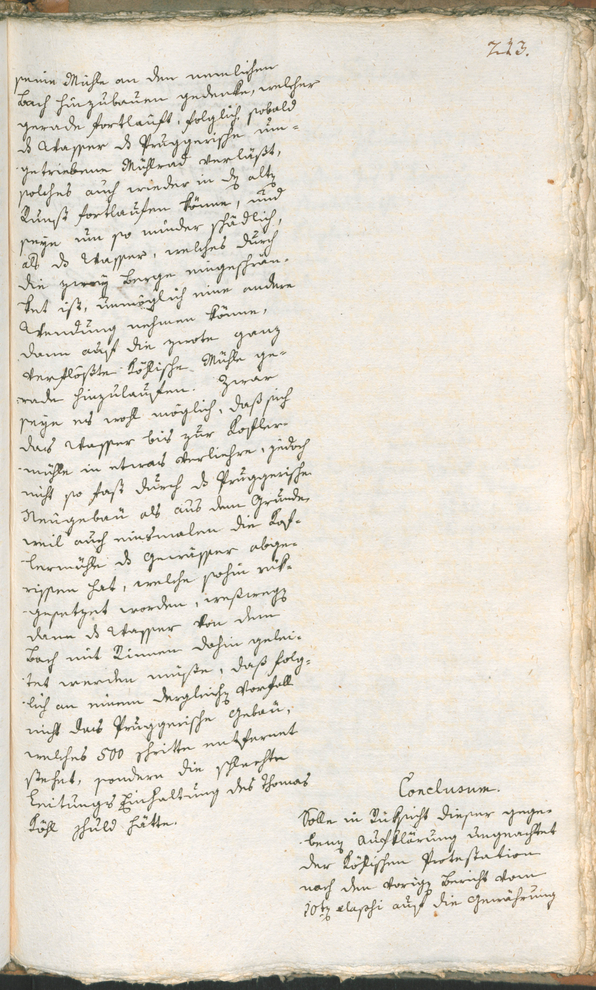 213.
seine Mühle an dem nemlichen
Bach hinzubauen gedenke, welcher
gerade fortlauft, folglich sobald
ds Wasser ds Pruggerische um-
getriebene Mühlrad verläßt,
solches auch wieder in dz alte
Runst fortlaufen könne, und
seye um so minder schädlich,
als ds Wasser, welches durch
die zwey Berge eingeschrän-
ket ist, unmöglich eine andere
Wendung nehmen könne,
dann auf die
Köhlische Mühle ge-
rade hinzulaufen. Zwar
seye es wohl möglich, daß sich
das Wasser bis zur
mühle in etwas verliehre, jedoch
nicht so fast durch ds Pruggerische
Neügebäu als aus dem Grunde,
weil auch einsmalen die
mühle ds Gewässer abge-
rissen hat, welche sohin
gesetzet worden, weßwegen
dann ds Wasser von dem
Bach mit Rinnen dahin gelei-
tet werden müße, daß folg-
lich an einem dergleichen Vorfall
nicht das Pruggerische Gebäu,
welches 500 schritte entfernet
stehet, sondern die schlechte
Leitungs Einhaltung des Thomas
Köhl schuld hätte.
Conclusum.
Solle in Rüksicht dieser gege-
benen Aufklärung ungeachtet
der Köhlischen Protestation
nach dem vorigen Bericht vom
auf die Gewährung